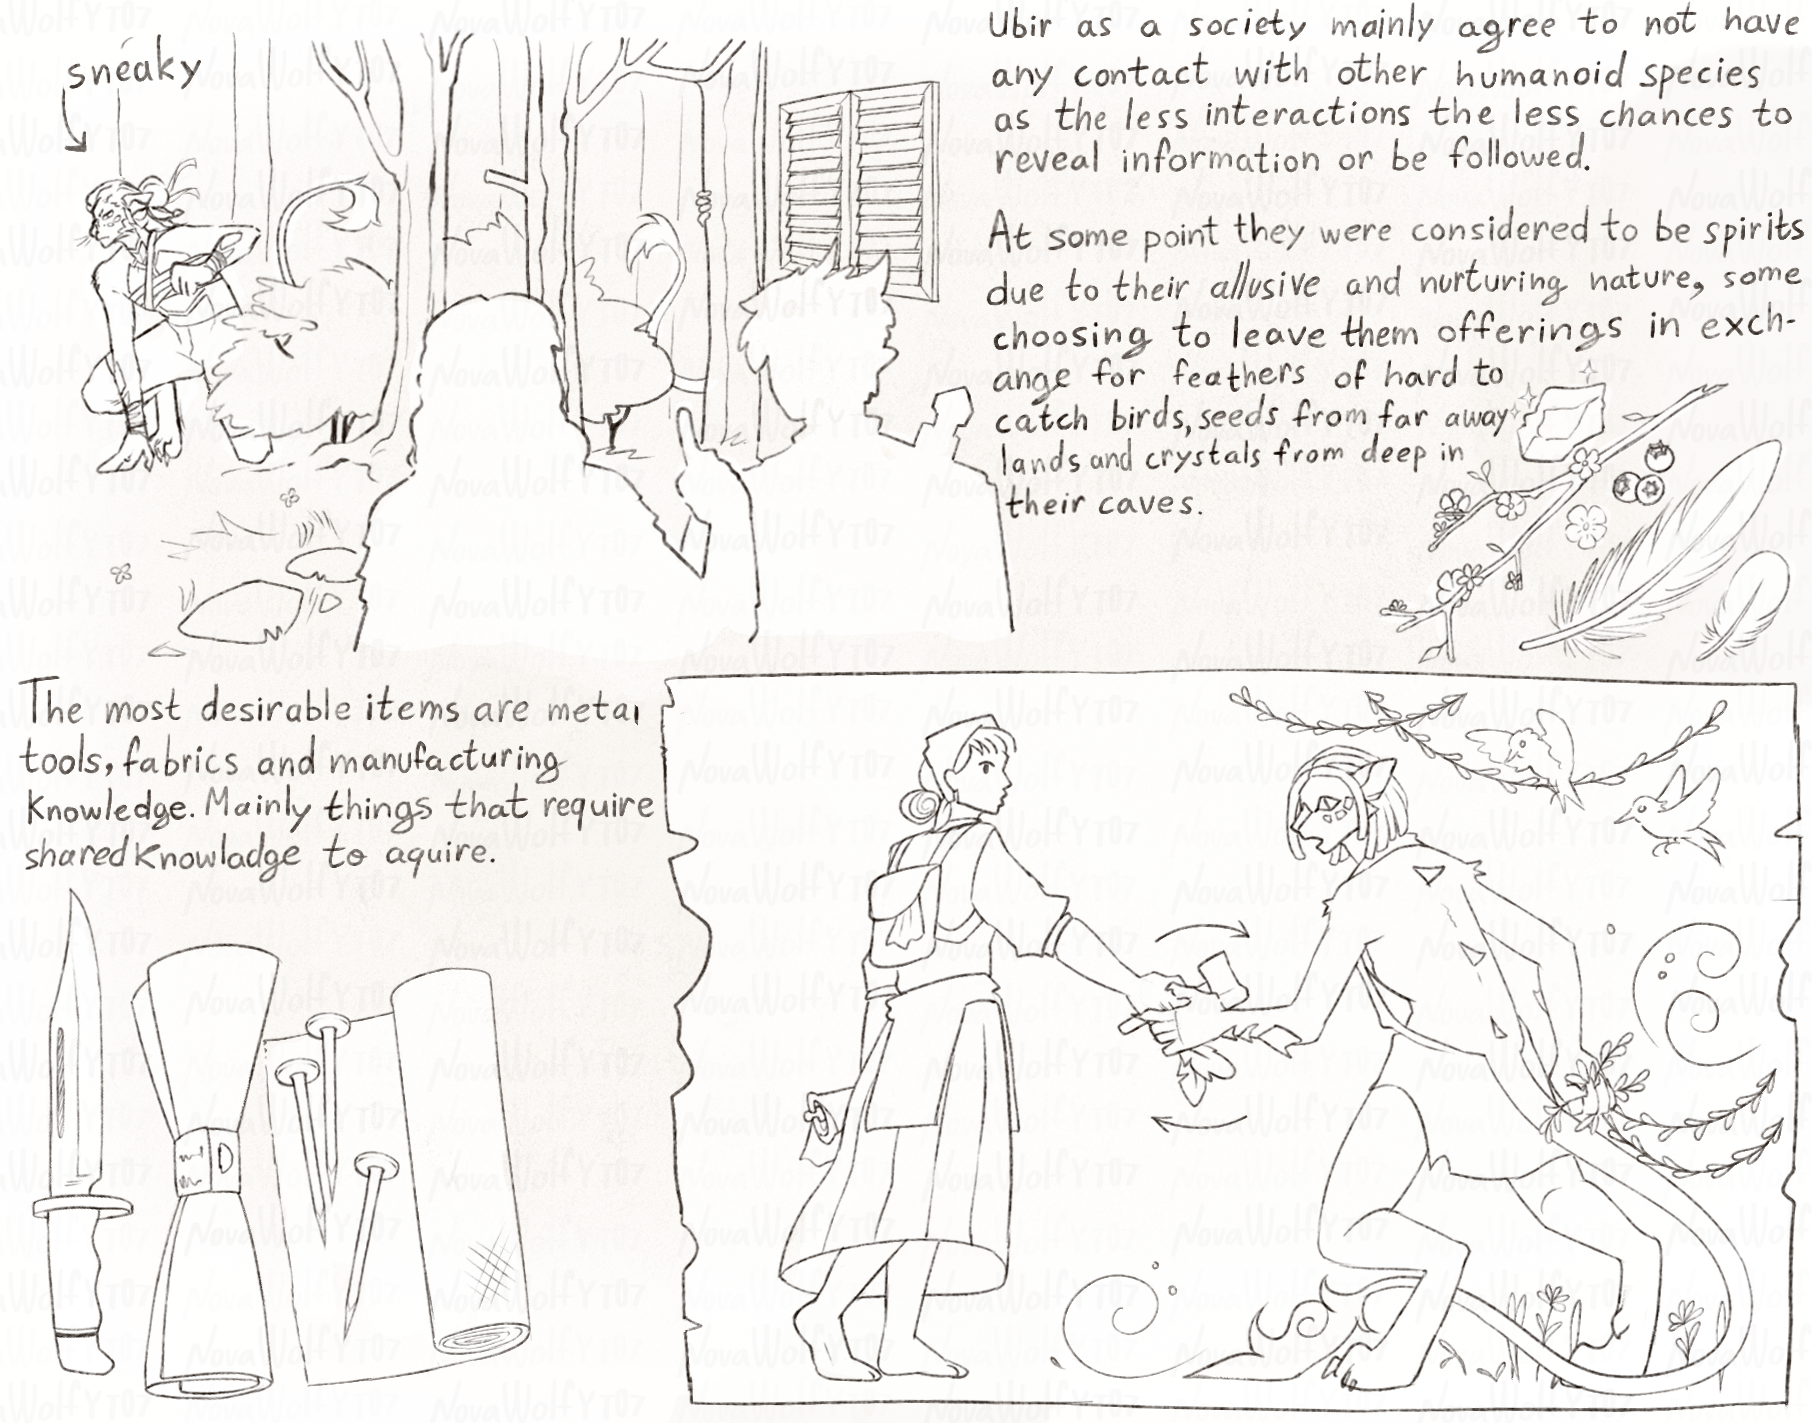 sneaky
Ubir as a society mainly agree to not have
any contact with other humanoid species
as the less interactions the less chances to
reveal information or be followed.
At some point they were considered to be spirits
due to their allusive and nurturing nature, some
choosing to leave them offerings in exch-
ange for feathers of hard to
catch birds, seeds from far away
lands and crystals from deep in
their caves.
The most desirable items are metal
tools, fabrics and manufacturing
Knowledge. Mainly things that require
shared Knowladge to aquire.
NovaWolfYT07